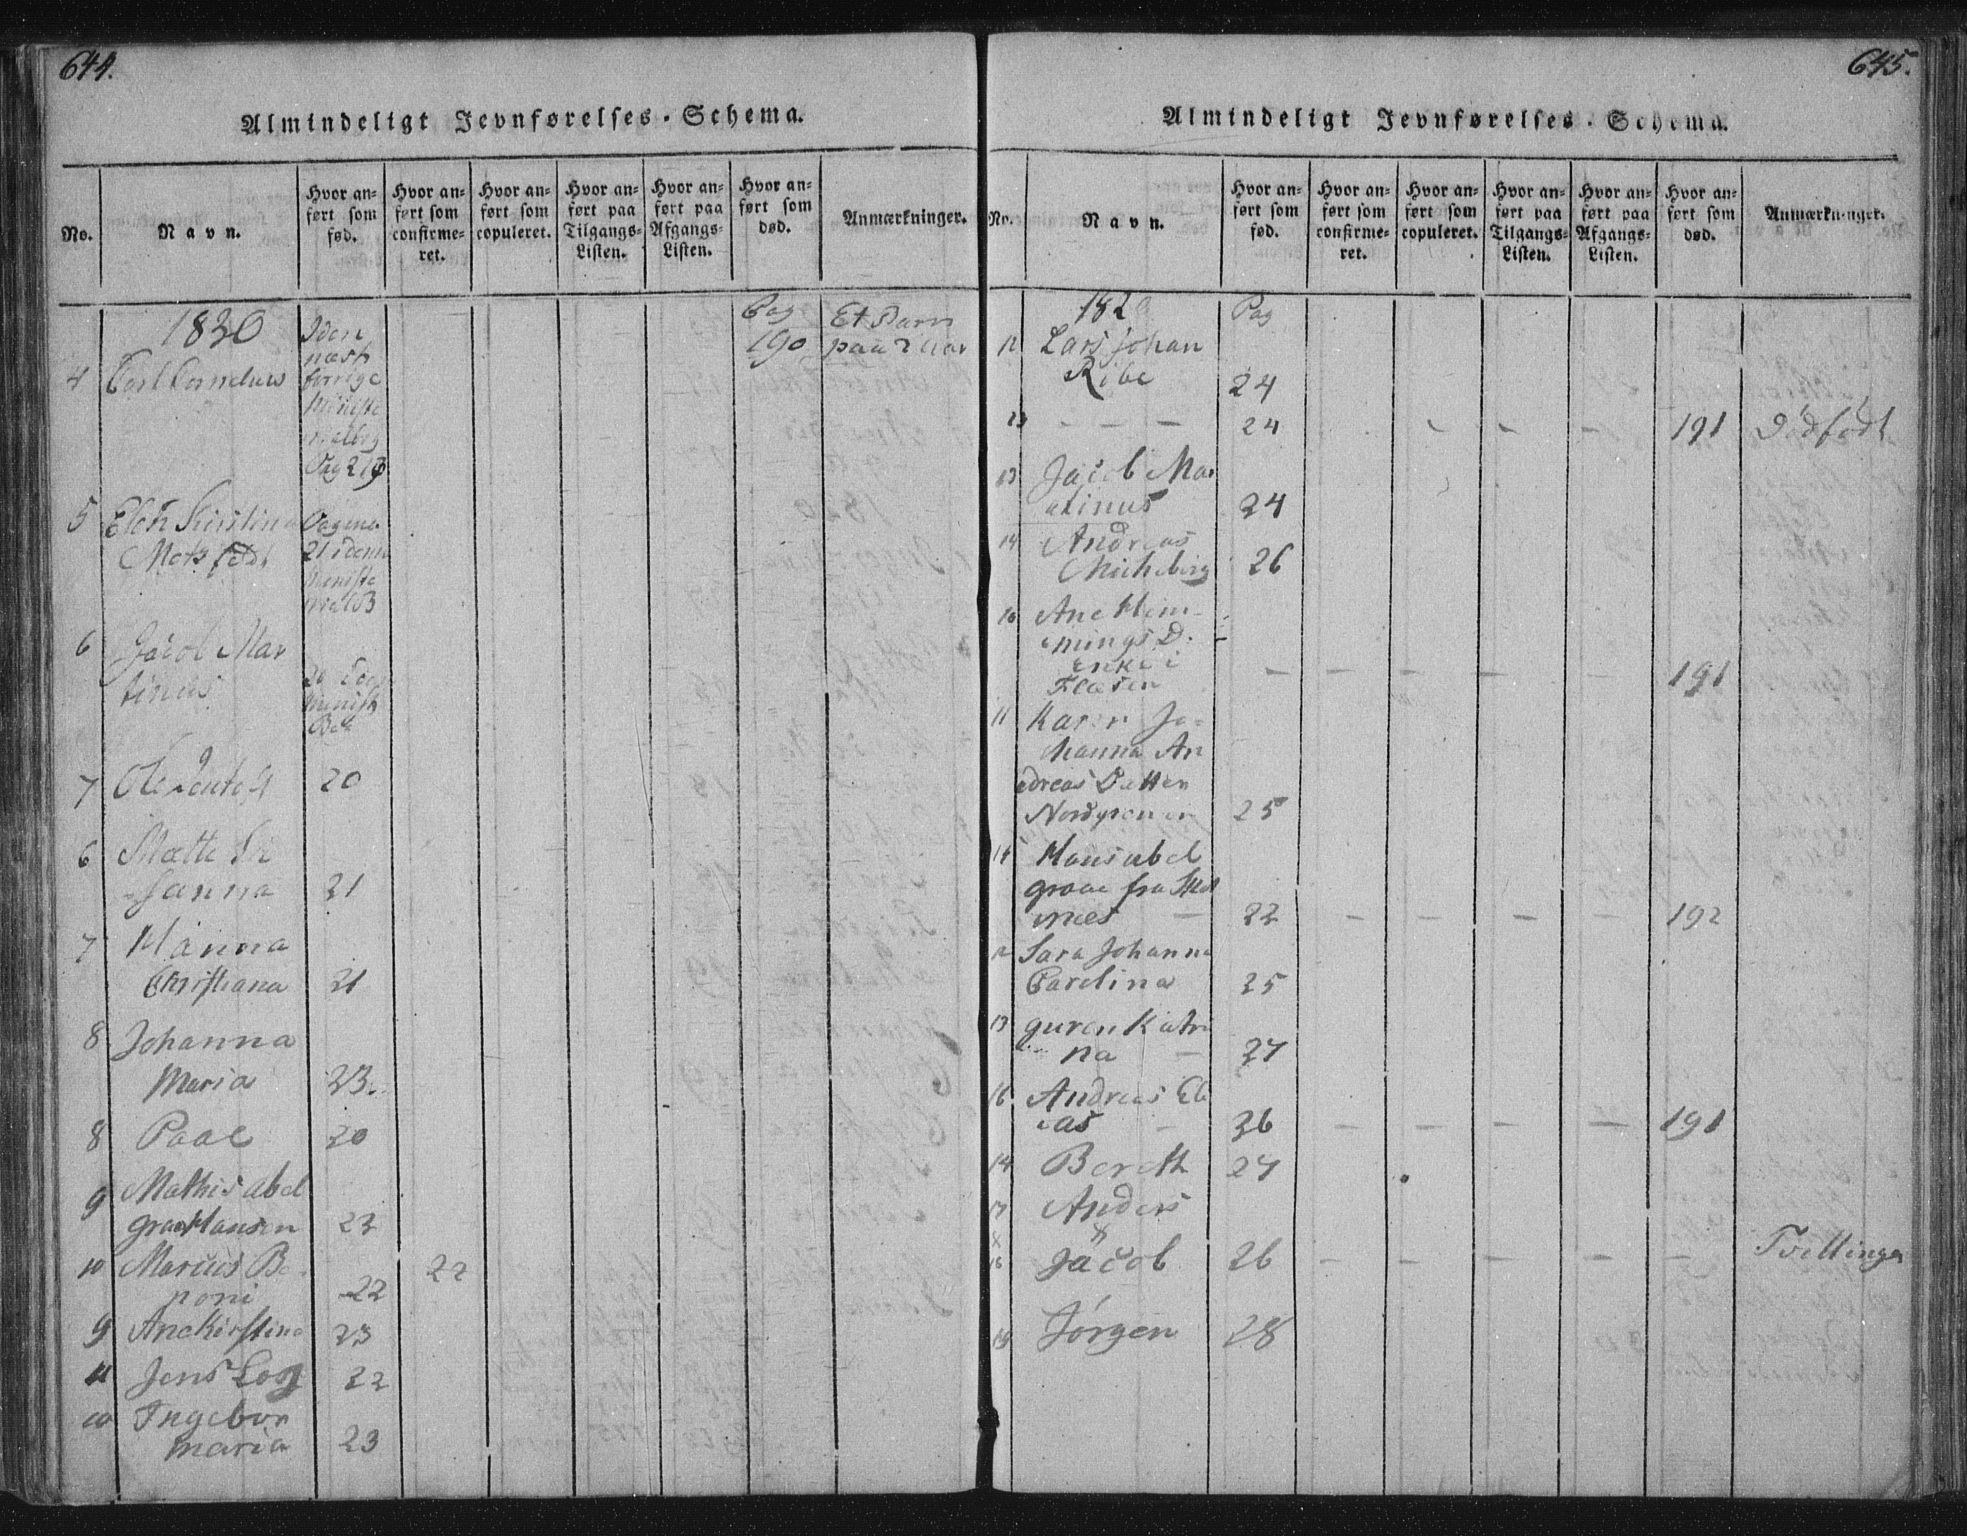 644.
Almindeligt Jevnførelses-Schema.
No.
Navn.
Hvor an-
ført som
fød.
Hvor an-
ført som
confirme-
ret.
Hvor an-
ført som
copuleret.
Hvor an-
ført paa
Tilgangs-
Listen.
Hvor an-
ført paa
Afgangs-
Listen.
Hvor an-
ført som
død.
Anmærkninger.
1830
Pag
Et Barn
190 paa 2 aar
4 Carl Cornelius
Iden
næst
forrige
Ministe
rialbog
Pag 219
5 Elen Kirstina
Metsfødt
Pagina
21 i denn
Ministe
rialB
6 Jacob Mar
tinus
20 I den
Minist
7 Ole 20
6 Mætte Su
sanna 21
7 Hanna
Christiana 21
8 Johanna
Maria 23.
8 Paal 20
9 Mathis abel
graaHansen 23
10 Marcus Be
poni 22 22
9 AneKirstina 23
11 Jens Log 22
10 Ingebor
maria 23
645.
Almindeligt Jevnførelses-Schema.
No.
Navn.
Hvor an-
ført som
fød.
Hvor an-
ført som
confirme-
ret.
Hvor an-
ført som
copuleret.
Hvor an-
ført paa
Tilgangs-
Listen.
Hvor an-
ført paa
Afgangs-
Listen.
Hvor an-
ført som
død.
Anmærkninger.
182 Pag
12 Lars Johan
Ribe 24
- - - 24 - - - 191 Dødfødt
13 Jacob Mar
tinus 24
14 Andreas
Michelborg 26
Ane Hem-
mings D.
enke i
Flæsen - - - - - 191
11 Karen Jo-
hanna An
dreas Datter
25
15 Hans abel
graae fra
næs - 22 - - - - 192
12 Sara Johanna
Carolina 25
13 guren Katri
na - 27
16 Andreas Eli
as - 26 - - - - 191
14 Bereth 27
17 Anders
&
Jacob 26 - - - - - Tvillinger
Jørgen 28